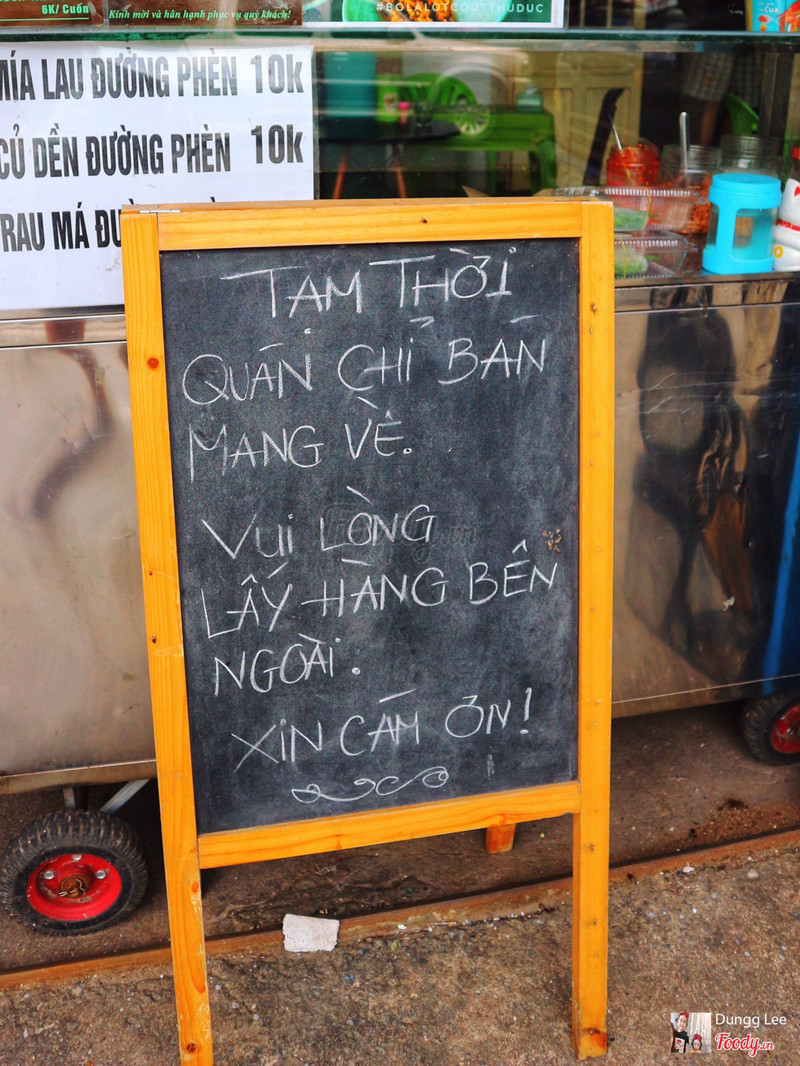 6K/ Cuốn
Kính mời và hân hạnh phục vụ quý khách!
#BOLALOTGOUTTHUDUC
MÍA LAU ĐƯỜNG PHÈN 10k
CỦ DỀN ĐƯỜNG PHÈN 10k
RAU MÁ
TẠM THỜI
QUÁN CHỈ BÁN
MANG VỀ.
VUI LÒNG
LẤY HÀNG BÊN
NGOÀI.
XIN CẢM ƠN!
Foody.vn
Dungg Lee
Foody.vn